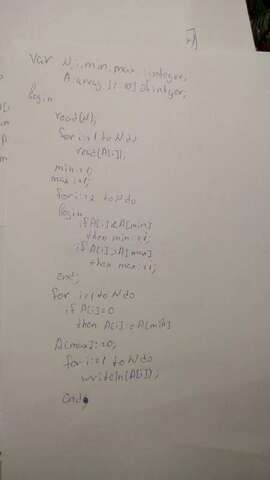 Var N,i,min,max:integer;
A:array [1..10] of integer;
begin
read(N);
for i:=1 to N do
read(A[i]);
min:=1;
max:=1;
for i:=2 to N do
begin
if A[i]<A[min]
then min:=i;
if A[i]>A[max]
then max:=i;
end;
for i:=1 to N do
if A[i]=0
then A[i]:=A[min]
A[max]:=0;
for i:=1 to N do
writeln(A[i]);
end.